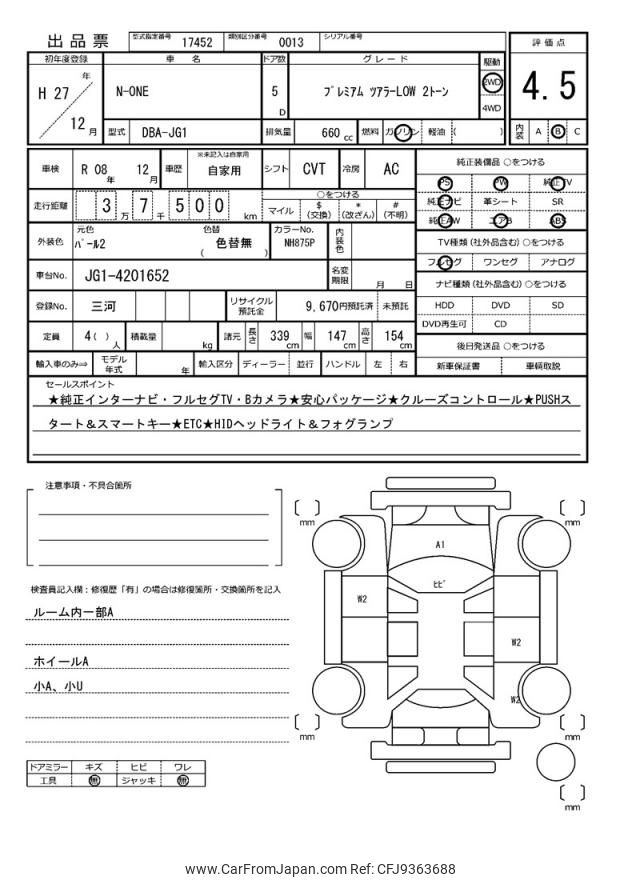 出品票 型式指定番号 17452 類別区分番号 0013 シリアル番号
初年度登録 車名 ドア数 グレード 駆動 評価点
H 27 年 12 月 N-ONE 5 D プレミアム ツアラーLOW 2トーン 2WD 4WD 4.5
型式 DBA-JG1 排気量 660 cc 燃料 ガソリン 軽油 ( ) 内装 A B C
車検 R 08 年 12 月 車歴 ※未記入は自家用 自家用 シフト CVT 冷房 AC 純正装備品 ○をつける
PS PW 純正TV
走行距離 3 万 7 千 5 0 0 km ○をつける 純正ナビ 革シート SR
マイル $ (交換) * (改ざん) # (不明) 純正AW エアB ABS
外装色 元色 パール2 色替 ( 色替無 ) カラーNo. NH875P 内装色 TV種類 (社外品含む) ○をつける
フルセグ ワンセグ アナログ
車台No. JG1-4201652 名変期限 月 日 ナビ種類 (社外品含む) ○をつける
登録No. 三河 リサイクル預託金 9,670円預託済 未預託 HDD DVD SD
DVD再生可 CD
定員 4( ) 人 積載量 kg 諸元 長さ 339 cm 幅 147 cm 高さ 154 cm 後日発送品 ○をつける
輸入車のみ⇒ モデル年式 年 輸入区分 ディーラー 並行 ハンドル 左 右 新車保証書 車輌取説
セールスポイント
★純正インターナビ・フルセグTV・Bカメラ★安心パッケージ★クルーズコントロール★PUSHス
タート＆スマートキー★ETC★HIDヘッドライト＆フォグランプ
注意事項・不具合箇所
検査員記入欄：修復歴「有」の場合は修復箇所・交換箇所を記入
ルーム内一部A
ホイールA
小A、小U
ドアミラー キズ ヒビ ワレ
工具 無 ジャッキ 無
mm
mm
A1
ヒビ
W2
W2
W2
mm
mm
mm
www.CarFromJapan.com Ref: CFJ9363688